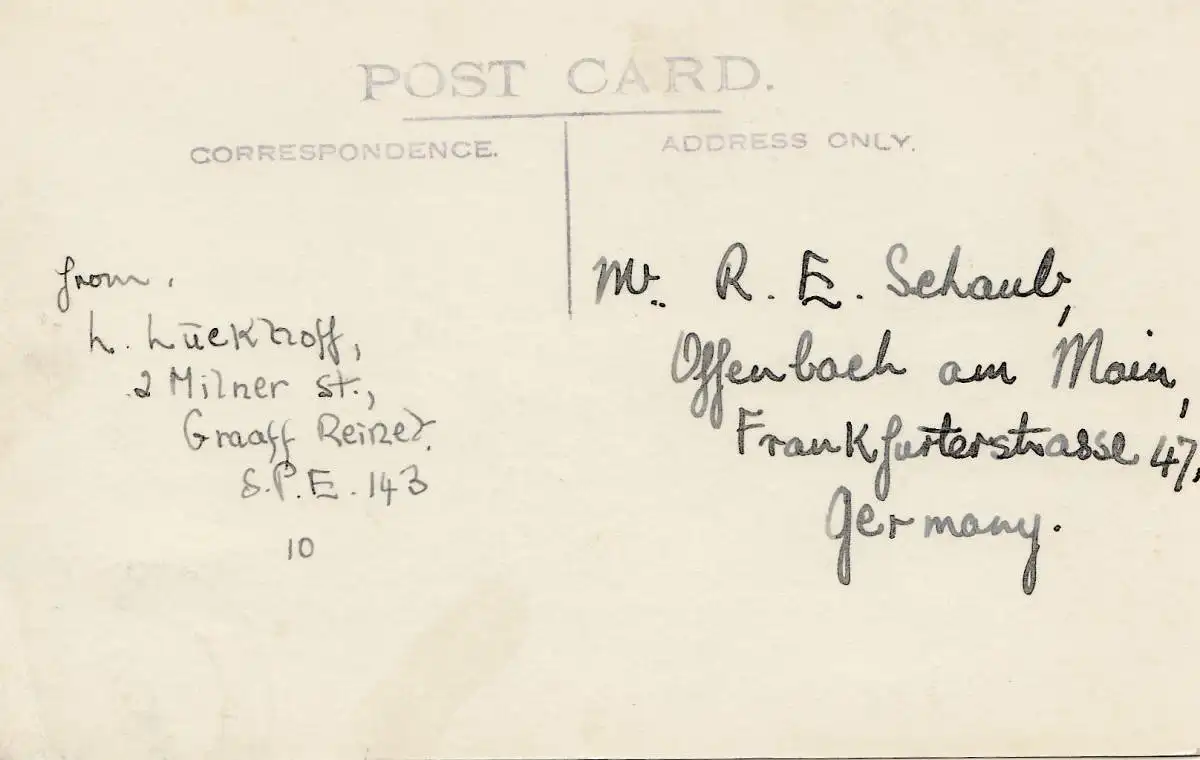 POST CARD.
CORRESPONDENCE.
ADDRESS ONLY.
from,
L. Lückhoff,
2 Milner st.,
Graaff Reinet.
S.P.E. 143
10
Mr. R. E. Schaub,
Offenbach am Main,
Frankfurterstrasse 47,
Germany.